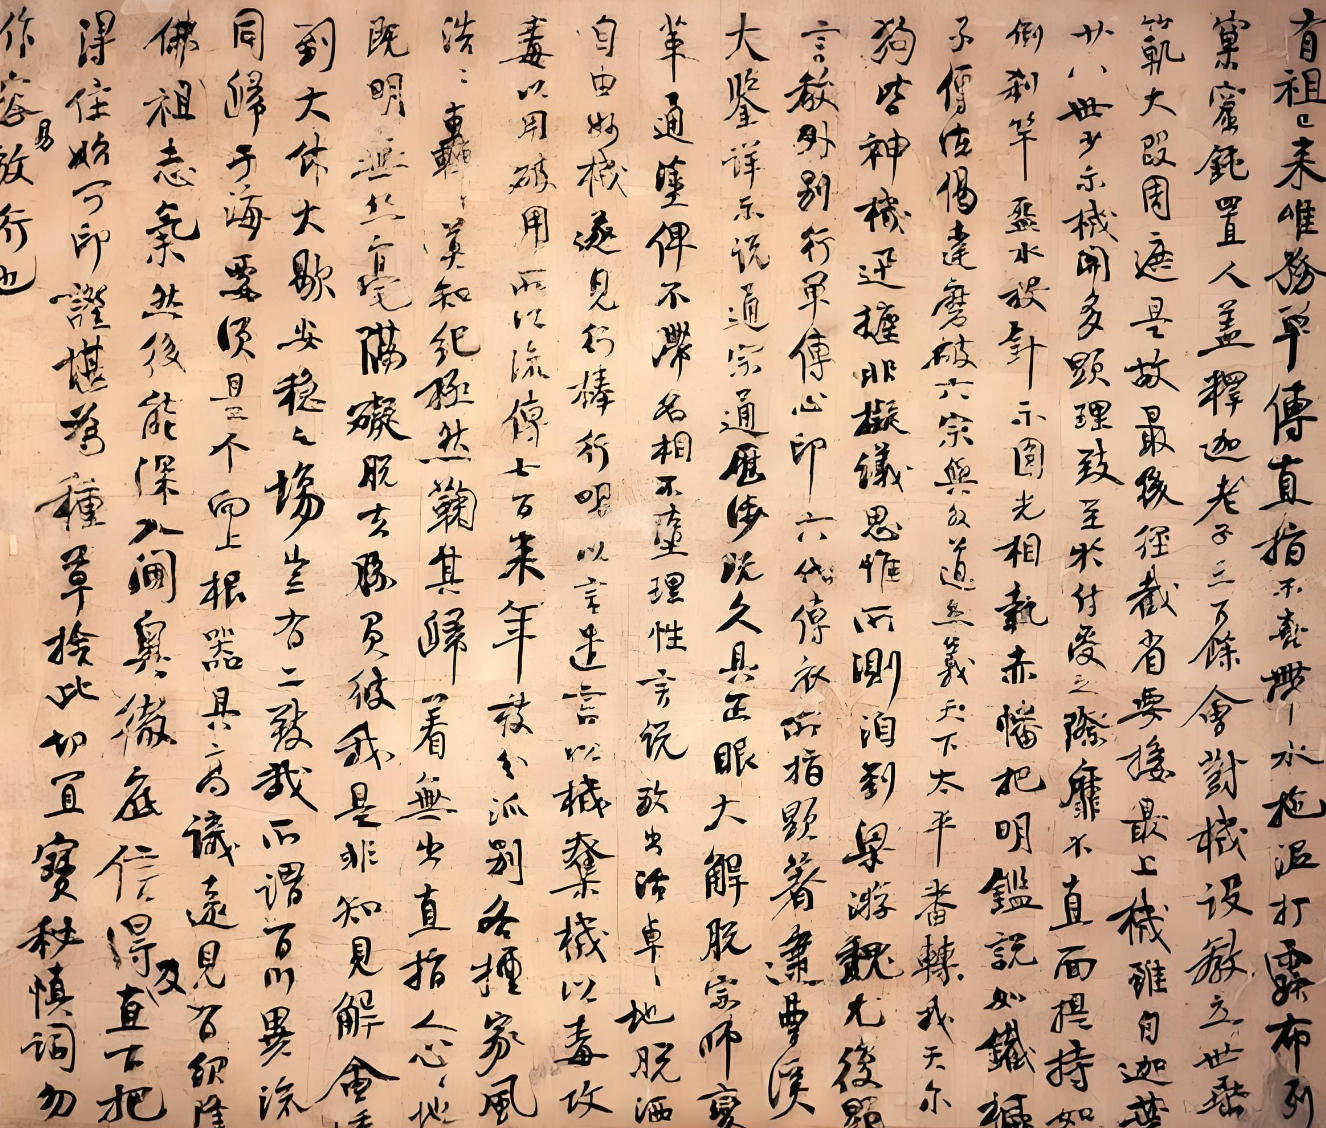 有祖已來唯務單傳直指不喜帶水拖泥打露布列
窠窟鈍置人盖釋迦老子三百餘會對機設教立世垂
範大段周遮是故最後徑截省要接最上機雖自迦葉
廿八世少示機關多顯理致至於付受之際靡不直面提持如
倒刹竿盋水投針示圓光相執赤幡把明鑑說如鐵橛
子傳法偈達磨破六宗與外道立義天下太平番轉我天尔
狗皆神機迅捷非擬議思惟所測洎到梁游魏尤復顯
言教外別行單傳心印六代傳衣所指顯著逮曹溪
大鑒詳示說通宗通歷涉既久具正眼大解脫宗師變
革通塗俾不滯名相不墮理性言說放出活卓〻地脫洒
自由妙機遂見行棒行喝以言遣言以機奪機以毒攻
毒以用破用所以流傳七百來年枝分派別各擅家風
浩〻轟〻莫知紀極然鞠其歸著無出直指人心〻地
既明無絲毫隔礙脫去勝負彼我是非知見解會透
到大休大歇安穩之場豈有二致哉所謂百川異流
同歸于海要須是个向上根器具高識遠見有紹隆
佛祖志氣然後能深入閫奧徹底信得及直下把
得住始可印證堪為種草捨此切宜寶秘慎詞勿
作容易放行也